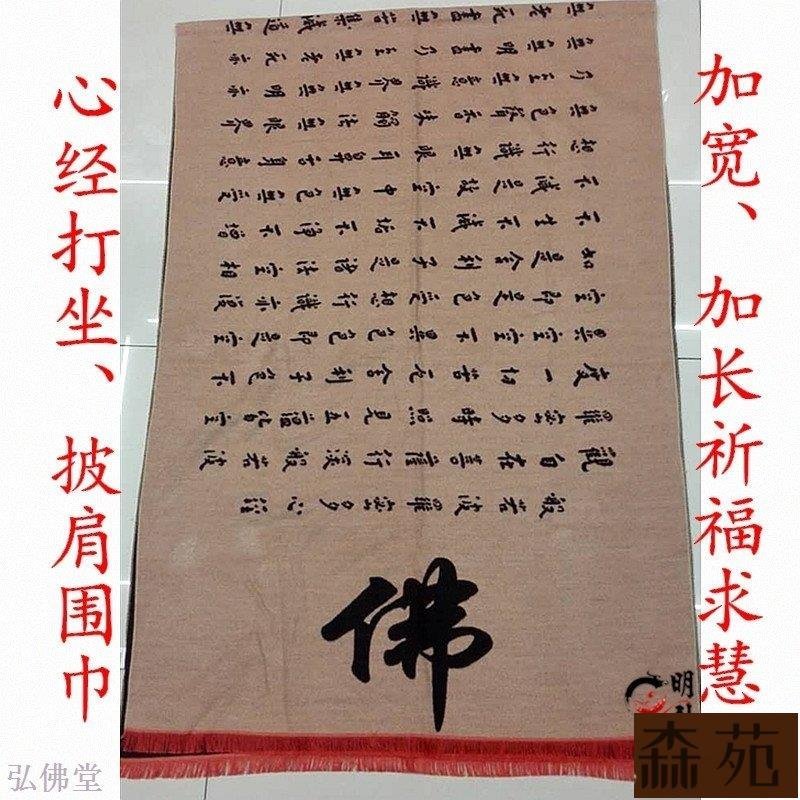 心经打坐、披肩围巾
加宽、加长祈福求慧
般若波羅蜜多心經
觀自在菩薩行深般若波
羅蜜多時照見五蘊皆空
度一切苦厄舍利子色不
異空空不異色色即是空
空即是色受想行識亦復
如是舍利子是諸法空相
不生不滅不垢不淨不增
不減是故空中無色無受
想行識無眼耳鼻舌身意
無色聲香味觸法無眼界
乃至無意識界無無明亦
無無明盡乃至無老死亦
無老死盡無苦集滅道無
佛
明
森苑
弘佛堂